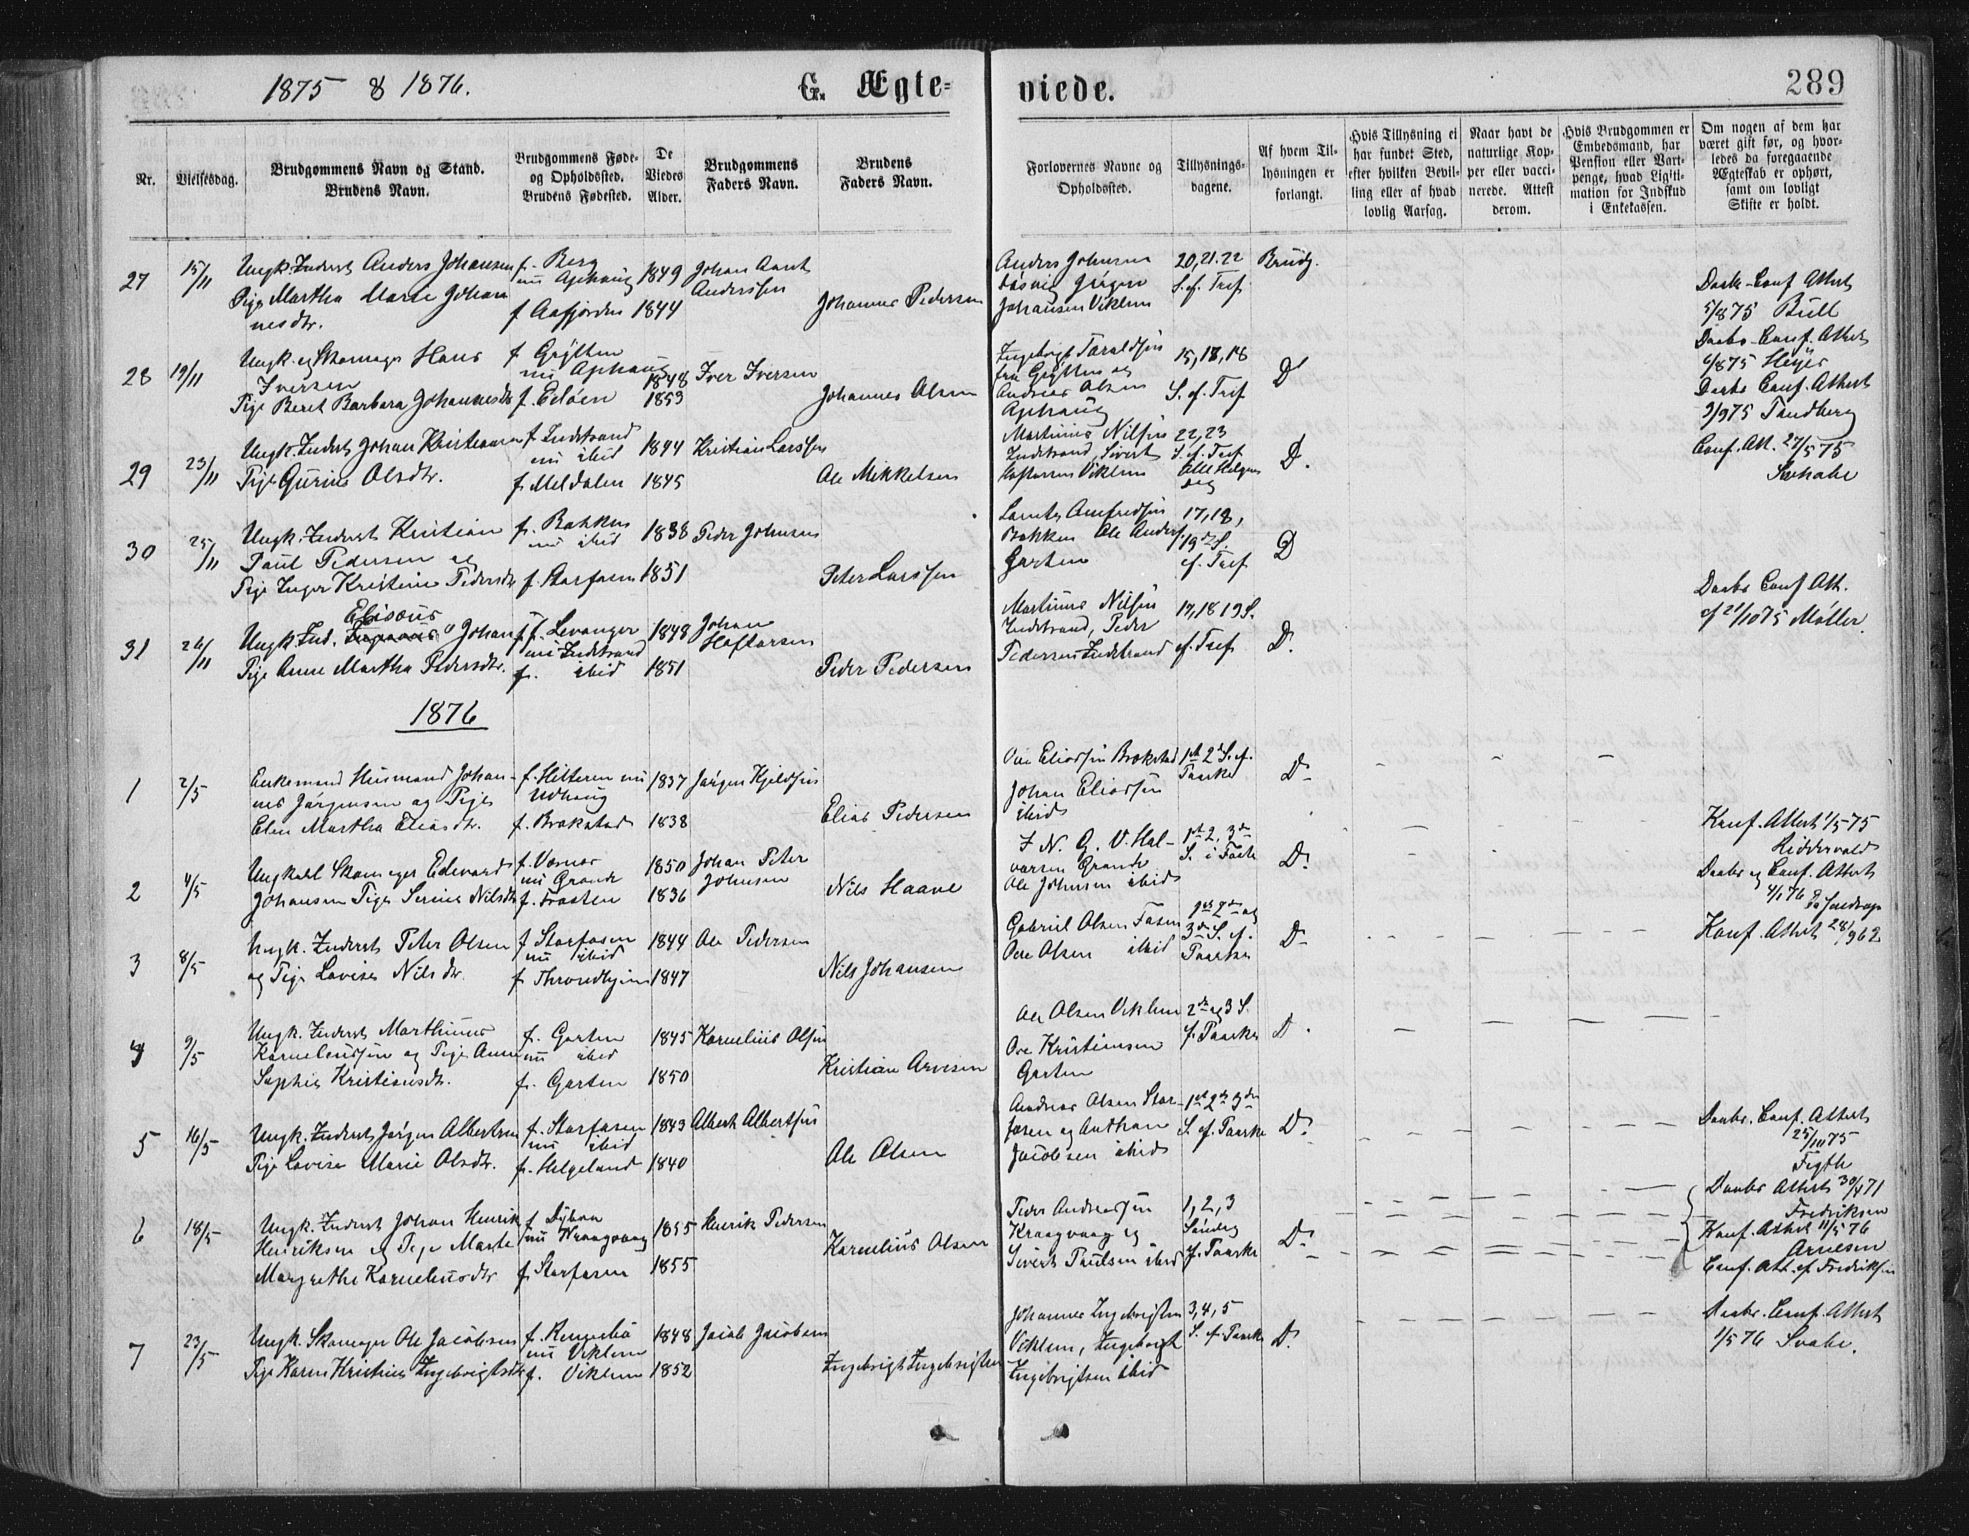 1875 & 1876.
G. Ægte-
viede.
289
Nr.
Vielsesdag.
Brudgommens Navn og Stand.
Brudens Navn.
Brudgommens Føde-
og Opholdssted.
Brudens Fødested.
De
Viedes
Alder.
Brudgommens
Faders Navn.
Brudens
Faders Navn.
Forlovernes Navne og
Opholdssted.
Tillysnings-
dagene.
Af hvem Til-
lysningen er
forlangt.
Hvis Tillysning ei
har fundet Sted,
efter hvilken Bevil-
ling eller af hvad
lovlig Aarsag.
Naar havt de
naturlige Kop-
per eller vacci-
nerede. Attest
derom.
Hvis Brudgommen er
Embedsmand, har
Pension eller Vart-
penge, hvad Legiti-
mation for Indskud
i Enkekassen.
Om nogen af dem har
været gift før, og hvor-
ledes da foregaaende
Ægteskab er ophørt,
samt om lovligt
Skifte er holdt.
27
15/11
Ungk. Inderst Anders Johansen
Pige Martha Marie Johan
nesdtr.
f. Berg
nu Aphaug
f Aafjorden
1849
1844
Johan Arnt
Anderssen
Johannes Pedersen
Anders Johnsen
Jørgen
Johansen Viklem
20, 21. 22
S. ef. Tref
Brudg.
Daabs-Conf Attest
5/875 Bull
28
19/11
Ungk. og Skomager Hans
Iversen
Pige Beret Barbara Johannesdtr
f Grytten
nu Aphaug
f. Edøen
1848
1853
Iver Iversen
Johannes Olsen
Ingebrigt Taraldsen
fra Grytten og
Andreas Olsen
Aphaug
15, 18, 18
S. ef. Tref
Do
Daabs-Conf. Attest
6/875 Heyer
Daabs Conf. Attest
9/975 Tandberg
29
23/11
Ungk. Inderst Johan Kristiansen
Pige Gurine Olsdtr.
f Indstrand
nu ibid
f. Meldalen
1844
1845
Kristian Larssen
Ole Mikkelsen
Martinus Nilsen
Indstrand, Sivert
Hoftorsen Viklem
22, 23
S. ef. Tref
Alle Helgens
Dag
D.
Conf. Att. 27/5 75
30
25/11
Ungk. Inderst Kristian
Paul Pedersen og
Pige Inger Kristine Pedersdtr
f. Bakken
nu ibid
f. Storfosen
1838
1851
Peder Johnsen
Peter Larssen
Bakken Ole Anders.
Garten
17, 18,
19de S.
ef. Tref
D
Daabs Conf Att.
af 21/1075 Møller.
31
26/11
Elisæus
Ungk. Ind. Johan
Pige Anne Martha Pedersdtr.
f. Levanger
nu Indstrand
f. ibid
1848
1851
Johan
Hoftorsen
Peder Pedersen
Martinus Nilsen
Indstrand, Peder
Pedersen Indstrand
17, 18 19 S.
ef. Tref
D.
1876
1
2/5
Enkemand Husmand Johan-
nes Jørgensen og Pige
Elen Martha Eliasdtr.
f. Hitteren nu
Udhaug
f. Brækstad
1837
1838
Jørgen Kjeldsen
Elias Pedersen
Ove Eliassen Brækstad
Johan Eliassen
ibid
1st 2d S. ef.
Paaske
D
Konf. Attest 1/575
Riddervold
2
4/5
Ungkarl Skomager Edevard
Johansen Pige Serine Nilsdtr
f. Værnes
nu Grande
f. Frosten
1850
1836
Johan Peter
Johnsen
Nils Haave
I. N. G. V. Hal-
vorsen Grande
Ole Johnsen ibid
1st 2, 3de
S. i Faste
D
Daabs og Conf. Attest
4/176
3
8/5
Ungk. Inderst Peter Olsen
og Pige Lovise Nilsdtr.
f Storfosen
nu ibid
f Throndhjem
1844
1847
Ole Pedersen
Nils Johansen
Gabriel Olsen Fosen
Ove Olsen ibid
1st 2de og
3de S. ef.
Paaske
D
Konf. Attest 28/962
4
9/5
Ungk. Inderst Marthinus
Korneliussen og Pige Anne
Sophie Kristiansdtr.
f. Garten
nu ibid
f. Garten
1845
1850
Kornelius Olsen
Kristian Arvesen
Ole Olsen Viklem
Ove Kristiansen
Garten
2de og 3 S.
ef. Paaske
D
5
16/5
Ungk. Inderst Jørgen Albertsen
Pige Lovise Marie Olsdtr.
f. Storfosen
nu ibid
f. Helgeland
1843
1840
Albert Albertsen
Ole Olsen
Andreas Olsen Stor-
fosen og Anthon
Jacobsen ibid
1st 2de 3de
S. ef. Paaske
D.
Daabs. Conf. Attest
25/1075
6
18/5
Ungk. Inderst Johan Henrik
Henriksen og Pige Marte
Margrethe Korneliusdtr
f Dybvaa
nu Kraagvaag
f. Storfosen
1855
1855
Henrik Pedersen
Kornelius Olsen
Peder Andreassen
Kraagvaag og
Sivert Paulsen ibid
1, 2, 3
Søndag
ef. Paaske
D.
Daabs Attest 30/471
Fredriksen
Konf. Attest 11/5 76
Arnesen
Conf. Att. ef Fredriksen
7
23/5
Ungk. Skomager Ole Jacobsen
Pige Karen Kristine Ingebrigtsdtr
f. Rennebu
nu Viklem
f. Viklem
1848
1852
Jacob Jacobsen
Ingebrigt Ingebrigtsen
Johannes Ingebrigtsen
Viklem, Ingebrigt
Ingebrigtsen ibid
3, 4, 5
S. ef. Paaske
D.
Daabs. Conf. Attest
1/576 Svabe.